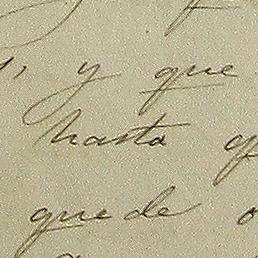 , y que
hasta q
quede